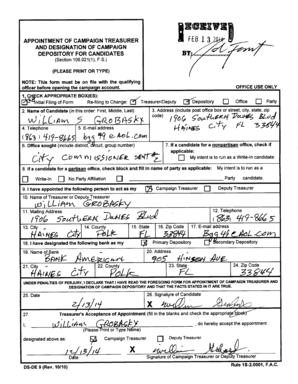 RECEIVED
FEB 13 2014
BY:
APPOINTMENT OF CAMPAIGN TREASURER
AND DESIGNATION OF CAMPAIGN
DEPOSITORY FOR CANDIDATES
(Section 106.021(1), F.S.)
(PLEASE PRINT OR TYPE)
NOTE: This form must be on file with the qualifying
officer before opening the campaign account.
OFFICE USE ONLY
1. CHECK APPROPRIATE BOX(ES):
Initial Filing of Form Re-filing to Change: Treasurer/Deputy Depository Office Party
2. Name of Candidate (in this order: First, Middle, Last)
WILLIAM S GROBASKY
3. Address (include post office box or street, city, state, zip
code)
1906 SOUTHERN DUNES BLVD
HAINES CITY FL 33844
4. Telephone
(863) 419-8665
5. E-mail address
6. Office sought (include district, circuit, group number)
CITY COMMISSIONER SEAT
7. If a candidate for a nonpartisan office, check if
applicable:
My intent is to run as a Write-In candidate.
8. If a candidate for a partisan office, check block and fill in name of party as applicable: My intent is to run as a
Write-In No Party Affiliation Party candidate.
9. I have appointed the following person to act as my Campaign Treasurer Deputy Treasurer
10. Name of Treasurer or Deputy Treasurer
WILLIAM GROBASKY
11. Mailing Address
1906 SOUTHERN DUNES BLVD
12. Telephone
(863) 419-8665
13. City
HAINES CITY
14. County
POLK
15. State
FL
16. Zip Code
33844
17. E-mail address
18. I have designated the following bank as my Primary Depository Secondary Depository
19. Name of Bank
BANK AMERICANA
20. Address
905
21. City
HAINES CITY
22. County
POLK
23. State
FL
24. Zip Code
33844
UNDER PENALTIES OF PERJURY, I DECLARE THAT I HAVE READ THE FOREGOING FORM FOR APPOINTMENT OF CAMPAIGN TREASURER AND
DESIGNATION OF CAMPAIGN DEPOSITORY AND THAT THE FACTS STATED IN IT ARE TRUE.
25. Date
2/13/14
26. Signature of Candidate
X
27. Treasurer's Acceptance of Appointment (fill in the blanks and check the appropriate block)
I, WILLIAM GROBASKY, do hereby accept the appointment
(Please Print or Type Name)
designated above as: Campaign Treasurer Deputy Treasurer
X
Date
Signature of Campaign Treasurer or Deputy Treasurer
DS-DE 9 (Rev. 10/10)
Rule 1S-2.0001, F.A.C.